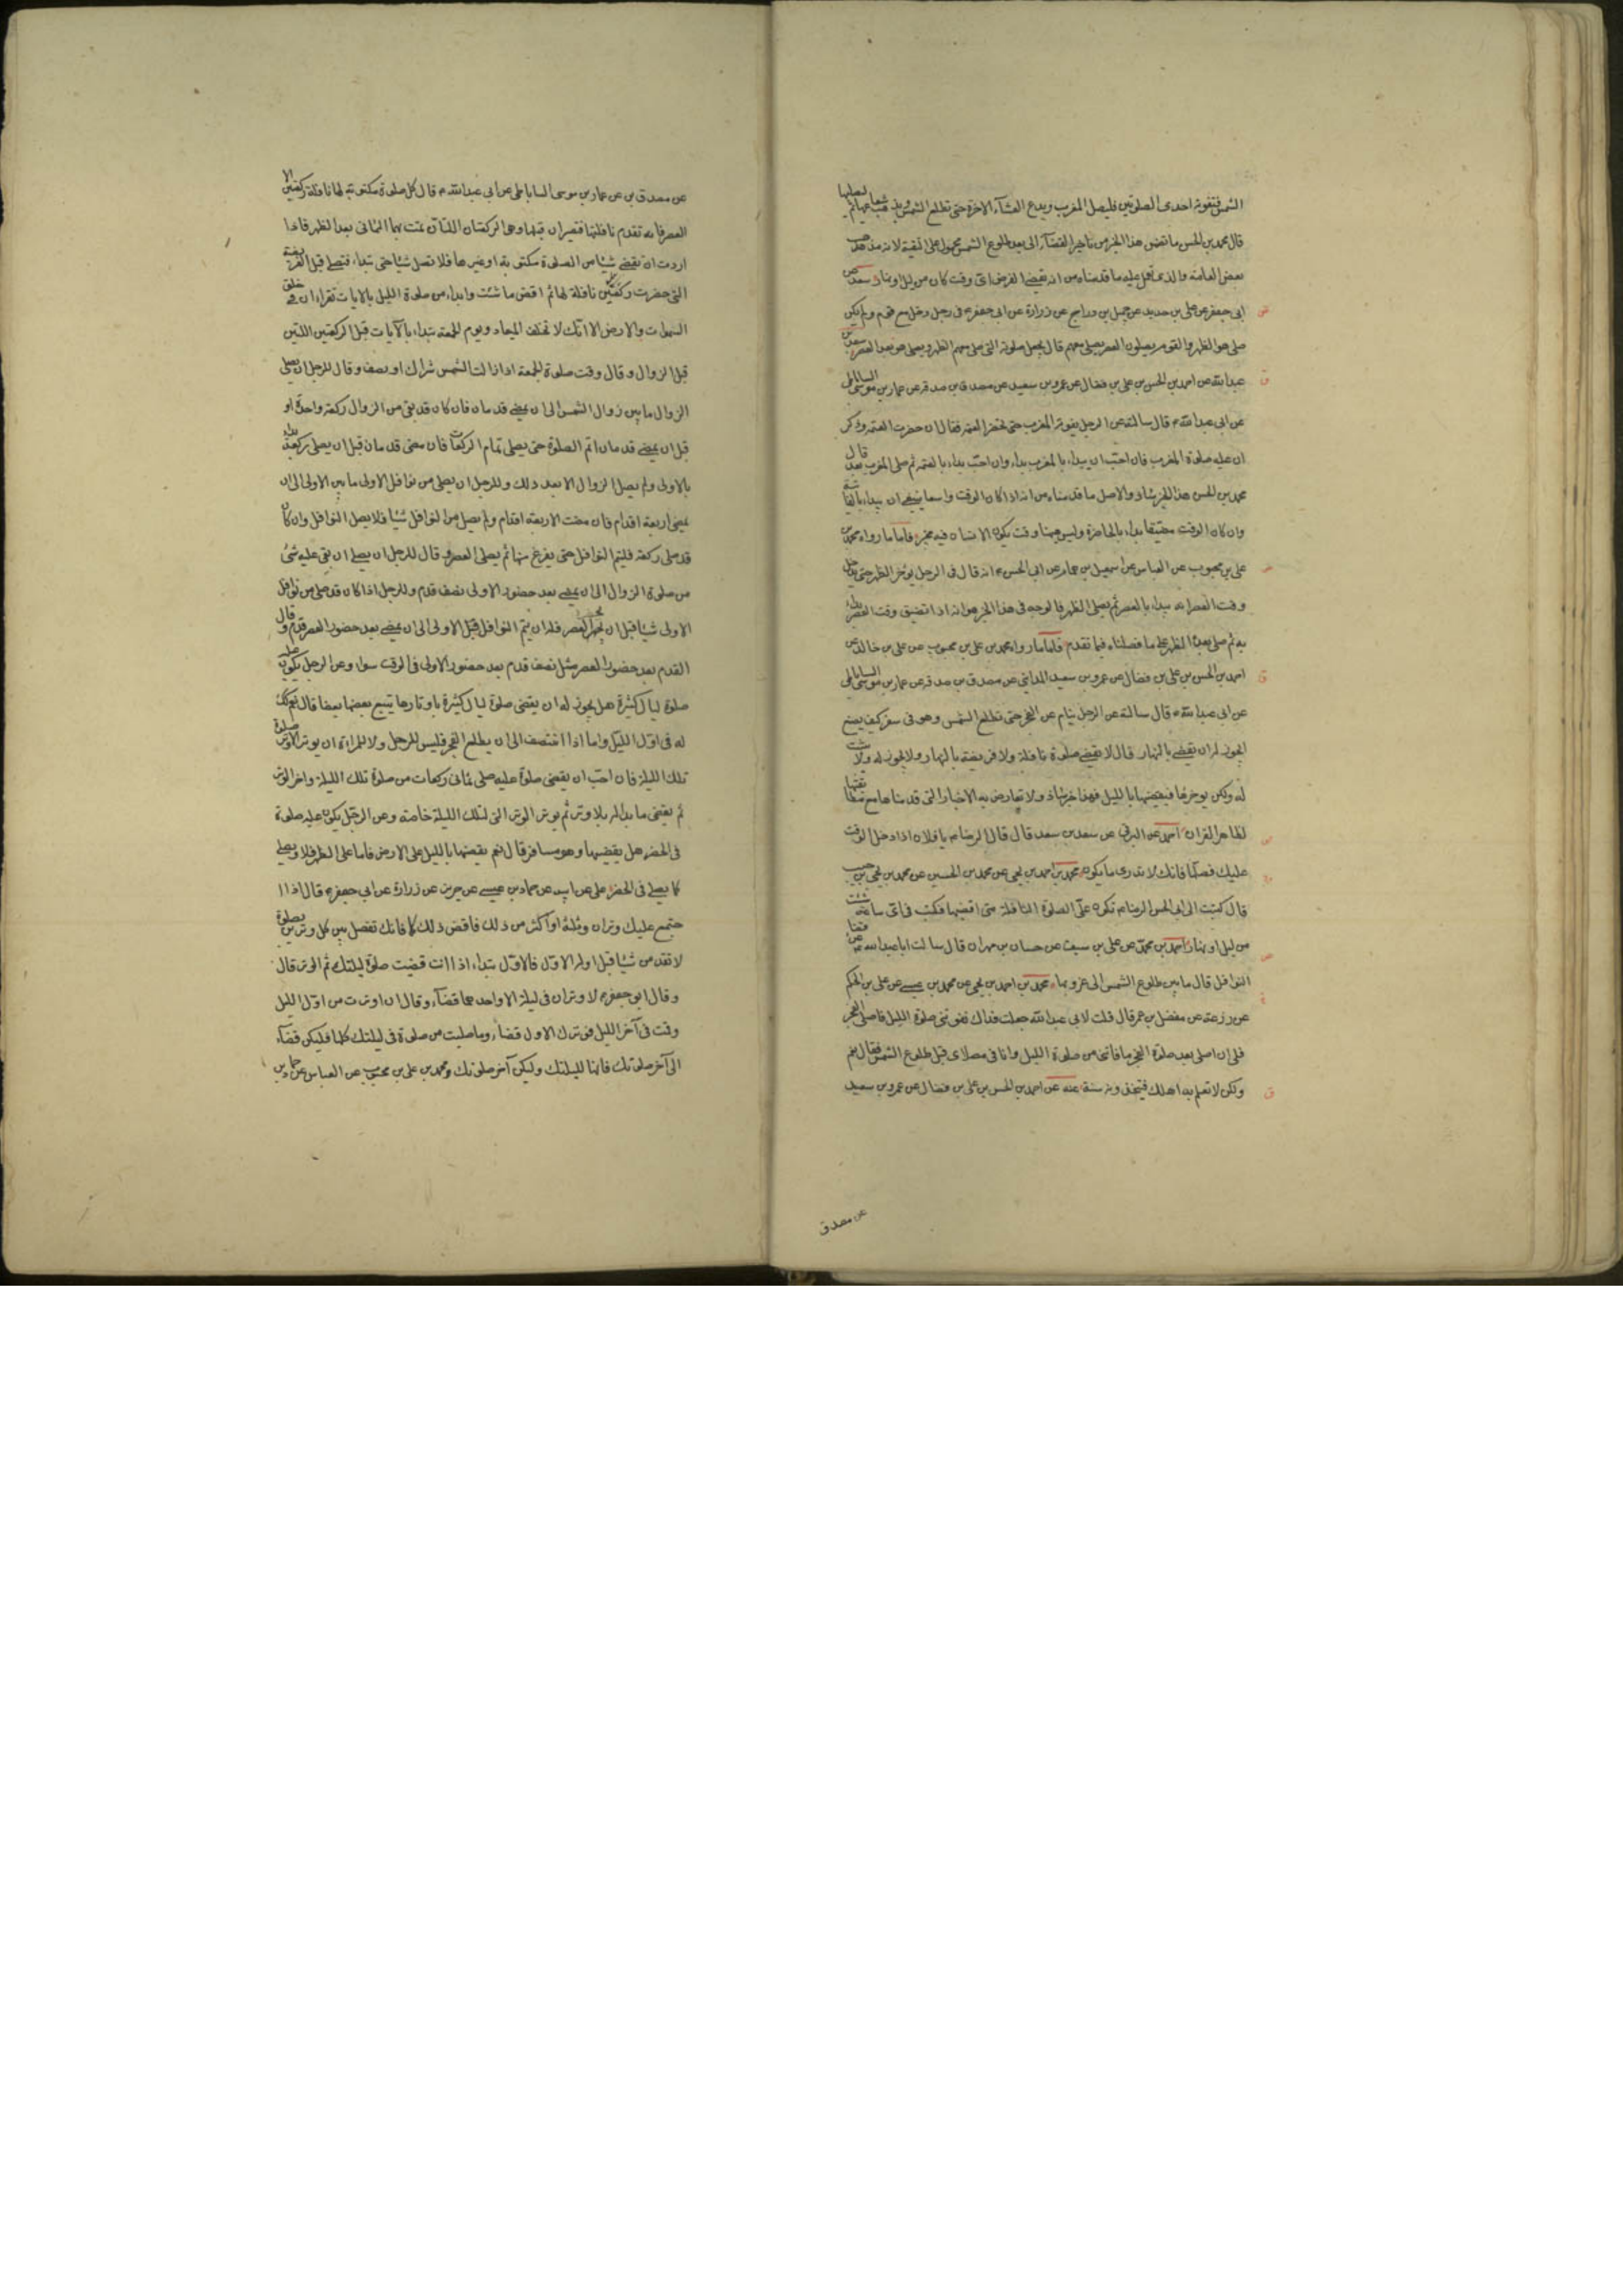 الشمس فتفوته احدى الصلوتين فليصل المغرب ويدع العشاء الاخرة حتى تطلع الشمس ويذهب شعاعها ثم ليصلها
قال محمد بن الحسن ما تضمن هذا الخبر من تاخير القضاء الى بعد طلوع الشمس محمول على التقية لانه مذهب
بعض العامة والذى نعمل عليه ما قدمناه من انه يقضى الفرض اى وقت كان من ليل او نهار سعد عن
ابى جعفر عن على بن حديد عن جميل بن دراج عن زرارة عن ابى جعفر ع فى رجل دخل مع قوم ولم يكن
صلى هو الظهر والقوم يصلون العصر يصلى معهم قال يجعل صلوته التى صلى معهم الظهر ويصلى هو بعد العصر سعد بن
عبد الله عن احمد بن الحسن بن على بن فضال عن عمرو بن سعيد عن مصدق بن صدقه عن عمار بن موسى الساباطى
عن ابى عبد الله ع قال سالته عن الرجل يفوته المغرب حتى تحضر العتمه فقال ان حضرت العتمه وذكر
ان عليه صلوة المغرب فان احب ان يبداء بالمغرب بداء وان احب بداء بالعتمه ثم صلى المغرب بعد قال
محمد بن الحسن هذا الخبر شاذ والاصل ما قدمناه من انه اذا كان الوقت واسعا ينبغى ان يبداء بالفائتة
وان كان الوقت مضيقا بداء بالحاضرة وليس ههنا وقت يكون الانسان فيه مخير فاما ما رواه محمد بن
على بن محبوب عن العباس عن اسمعيل بن همام عن ابى الحسن ع انه قال فى الرجل يوخر الظهر حتى يدخل
وقت العصر انه يبداء بالعصر ثم يصلى الظهر فالوجه فى هذا الخبر هو انه اذا تضيق وقت العصر بداء
به ثم صلى بعده الظهر على ما فصلناه فيما تقدم فاما ما رواه محمد بن على بن محبوب عن على بن خالد عن
احمد بن الحسن بن على بن فضال عن عمرو بن سعيد المداينى عن مصدق بن صدقه عن عمار بن موسى الساباطى
عن ابى عبد الله ع قال سالته عن الرجل ينام عن الفجر حتى تطلع الشمس وهو فى سفر كيف يصنع
ايجوز له ان يقضى بالنهار قال لا يقضى صلوة نافلة ولا فريضة بالنهار ولا يجوز له ولا يثبت
له ولكن يوخرها فيقضيها بالليل فهذا خبر شاذ ولا تعارض به الاخبار التى قدمناها مع مطابقتها
لظاهر القران احمد عن البرقى عن سعد بن سعد قال قال الرضا ع يا فلان اذا دخل الوقت
عليك فصلها فانك لا تدرى ما يكون محمد بن احمد بن يحيى عن محمد بن الحسين عن محمد بن يحيى بن حبيب
قال كتبت الى ابى الحسن الرضا ع تكون على الصلوة النافلة متى اقضيها فكتب فى اى ساعة شئت
من ليل او نهار احمد بن محمد عن على بن سيف عن حسان بن مهران قال سالت ابا عبد الله ع عن قضاء
النوافل قال ما بين طلوع الشمس الى غروبها محمد بن احمد بن يحيى عن محمد بن عيسى عن على بن الحكم
عن زرعة عن مفضل بن عمر قال قلت لابى عبد الله جعلت فداك تفوتنى صلوة الليل فاصلى الفجر
فلى ان اصلى بعد صلوة الفجر ما فاتنى من صلوة الليل وانا فى مصلاى قبل طلوع الشمس فقال نعم
ولكن لا تعلم به اهلك فيتخذونه سنة عنه عن احمد بن الحسن بن على بن فضال عن عمرو بن سعيد
عن مصدق
عن مصدق بن عن عمار بن موسى الساباطى عن ابى عبد الله ع قال كل صلوة مكتوبة لها نافلة ركعتين الا
العصر فانه تقدم نافلتها فتصيران قبلها وهما الركعتان اللتان تمت بهما الثمانى بعد الظهر فاذا
اردت ان تقضى شيئا من الصلوة مكتوبة او غيرها فلا تصل شيئا حتى تبداء فتصلى قبل الفريضة
التى حضرت ركعتين نافلة لها ثم اقض ما شئت وابداء من صلوة الليل بالايات تقراء ان فى خلق
السموات والارض الا انك لا تخلف الميعاد ويوم الجمعه تبداء بالايات قبل الركعتين اللتين
قبل الزوال وقال وقت صلوة الجمعه اذا زالت الشمس شراك او نصف وقال للرجل ان يصلى
الزوال ما بين زوال الشمس الى ان يمضى قدمان فان كان قد بقى من الزوال ركعة واحدة او
قبل ان يمضى قدمان اتم الصلوة حتى يصلى تمام الركعات فان مضى قدمان قبل ان يصلى ركعة بداء
بالاولى ولم يصل الزوال الا بعد ذلك وللرجل ان يصلى من نوافل الاولى ما بين الاولى الى ان
يمضى اربعة اقدام فان مضت الاربعة اقدام ولم يصل من النوافل شيئا فلا يصل النوافل وان كان
قد صلى ركعة فليتم النوافل حتى يفرغ منها ثم يصلى العصر وقال للرجل ان يصلى ان بقى عليه شئ
من صلوة الزوال الى ان يمضى بعد حضور الاولى نصف قدم وللرجل اذا كان قد صلى من نوافل
الاولى شيئا قبل ان تحضر العصر فله ان يتم النوافل قبل الاولى الى ان يمضى بعد حضور العصر قدم وقال
القدم بعد حضور العصر مثل نصف قدم بعد حضور الاولى فى الوقت سواء وعن الرجل يكون عليه
صلوة ليال كثيرة هل يجوز له ان يقضى صلوة ليال كثيرة باوتارها يتبع بعضها بعضا قال نعم كذلك
له فى اول الليل واما اذا انتصف الى ان يطلع الفجر فليس للرجل ولا للمراة ان يوتر الا وتر صلوة
تلك الليلة فان احب ان يقضى صلوة عليه صلى ثمانى ركعات من صلوة تلك الليلة واخر الوتر
ثم يقضى ما بداله بلا وتر ثم يوتر الوتر التى لتلك الليلة خاصة وعن الرجل يكون عليه صلوة
فى الحضر هل يقضيها وهو مسافر قال نعم يقضيها بالليل على الارض فاما على الظهر فلا ويصلى
كما يصلى فى الحضر على عن ابيه عن حماد بن عيسى عن حريز عن زرارة عن ابى جعفر ع قال اذا ا
جتمع عليك وتران وثلثة او اكثر من ذلك فاقض ذلك كما فاتك تفصل بين كل وترين بصلوة
لا تقدمن شيئا قبل اوله الاول فالاول تبداء اذا انت قضيت صلوة ليلتك ثم الوتر قال
وقال ابو جعفر ع لا وتران فى ليلة الا واحدهما قضاء وقال ان اوترت من اول الليل
وقمت فى آخر الليل فوترك الاول قضاء وما صليت من صلوة فى ليلتك كلها فليكن قضاء
الى آخر صلوتك فانها لليلتك وليكن آخر صلوتك ومحمد بن على بن محبوب عن العباس عن حماد بن